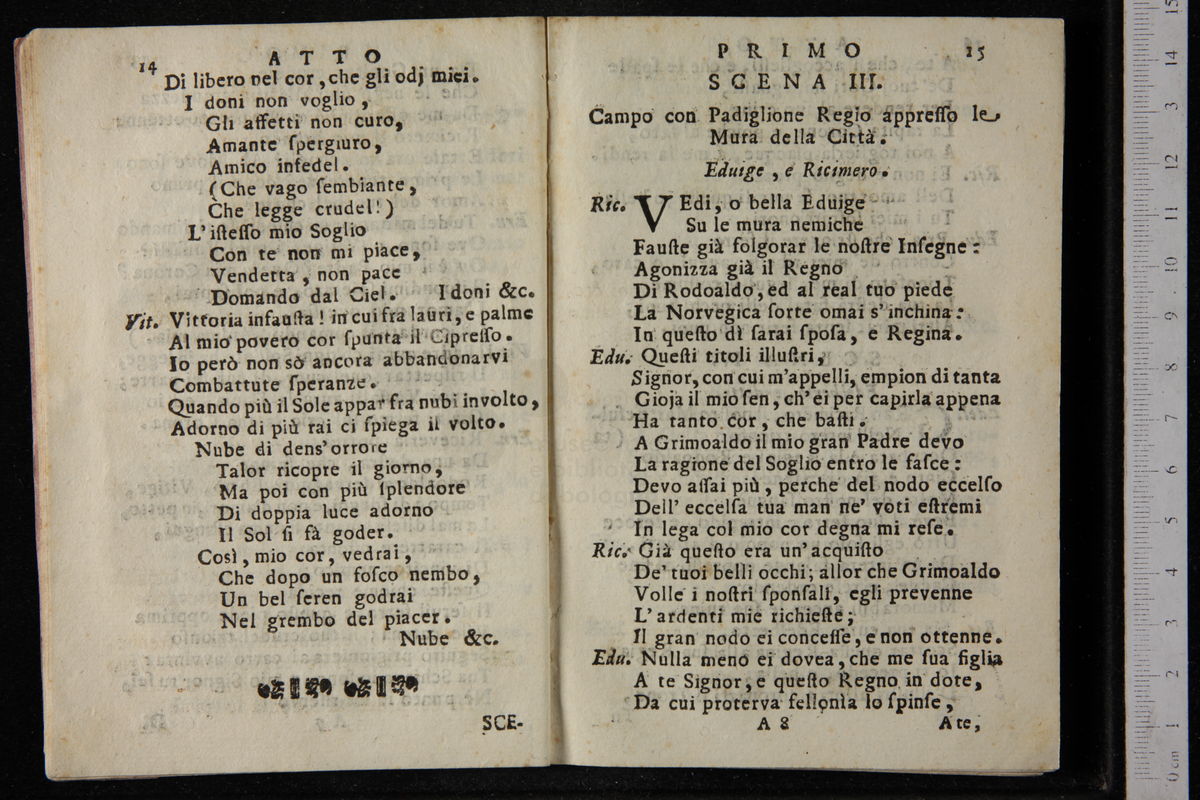 14
ATTO
Di libero nel cor, che gli odj miei.
I doni non voglio,
Gli affetti non curo,
Amante ſpergiuro,
Amico infedel.
(Che vago ſembiante,
Che legge crudel!)
L'iſteſſo mio Soglio
Con te non mi piace,
Vendetta, non pace
Domando dal Ciel. I doni &c.
Vit. Vittoria infauſta! in cui fra lauri, e palme
Al mio povero cor ſpunta il Cipreſſo.
Io però non sò ancora abbandonarvi
Combattute ſperanze.
Quando più il Sole appar fra nubi involto,
Adorno di più rai ci ſpiega il volto.
Nube di dens'orrore
Talor ricopre il giorno,
Ma poi con più ſplendore
Di doppia luce adorno
Il Sol ſi fà goder.
Così, mio cor, vedrai,
Che dopo un foſco nembo,
Un bel ſeren godrai
Nel grembo del piacer.
Nube &c.
SCE-
PRIMO
15
SCENA III.
Campo con Padiglione Regio appreſſo le
Mura della Città.
Eduige, e Ricimero.
Ric. VEdi, o bella Eduige
Su le mura nemiche
Fauſte già folgorar le noſtre Inſegne:
Agonizza già il Regno
Di Rodoaldo, ed al real tuo piede
La Norvegica ſorte omai s'inchina:
In queſto dì ſarai ſpoſa, e Regina.
Edu. Queſti titoli illuſtri,
Signor, con cui m'appelli, empion di tanta
Gioja il mio ſen, ch'ei per capirla appena
Ha tanto cor, che baſti.
A Grimoaldo il mio gran Padre devo
La ragione del Soglio entro le faſce:
Devo aſſai più, perche del nodo eccelſo
Dell' eccelſa tua man ne' voti eſtremi
In lega col mio cor degna mi reſe.
Ric. Già queſto era un'acquiſto
De' tuoi belli occhi; allor che Grimoaldo
Volle i noſtri ſponſali, egli prevenne
L'ardenti mie richieſte;
Il gran nodo ei conceſſe, e non ottenne.
Edu. Nulla meno ei dovea, che me ſua figlia
A te Signor, e queſto Regno in dote,
Da cui proterva fellonìa lo ſpinſe,
A 8
A te,
0 cm 1 2 3 4 5 6 7 8 9 10 11 12 13 14 15